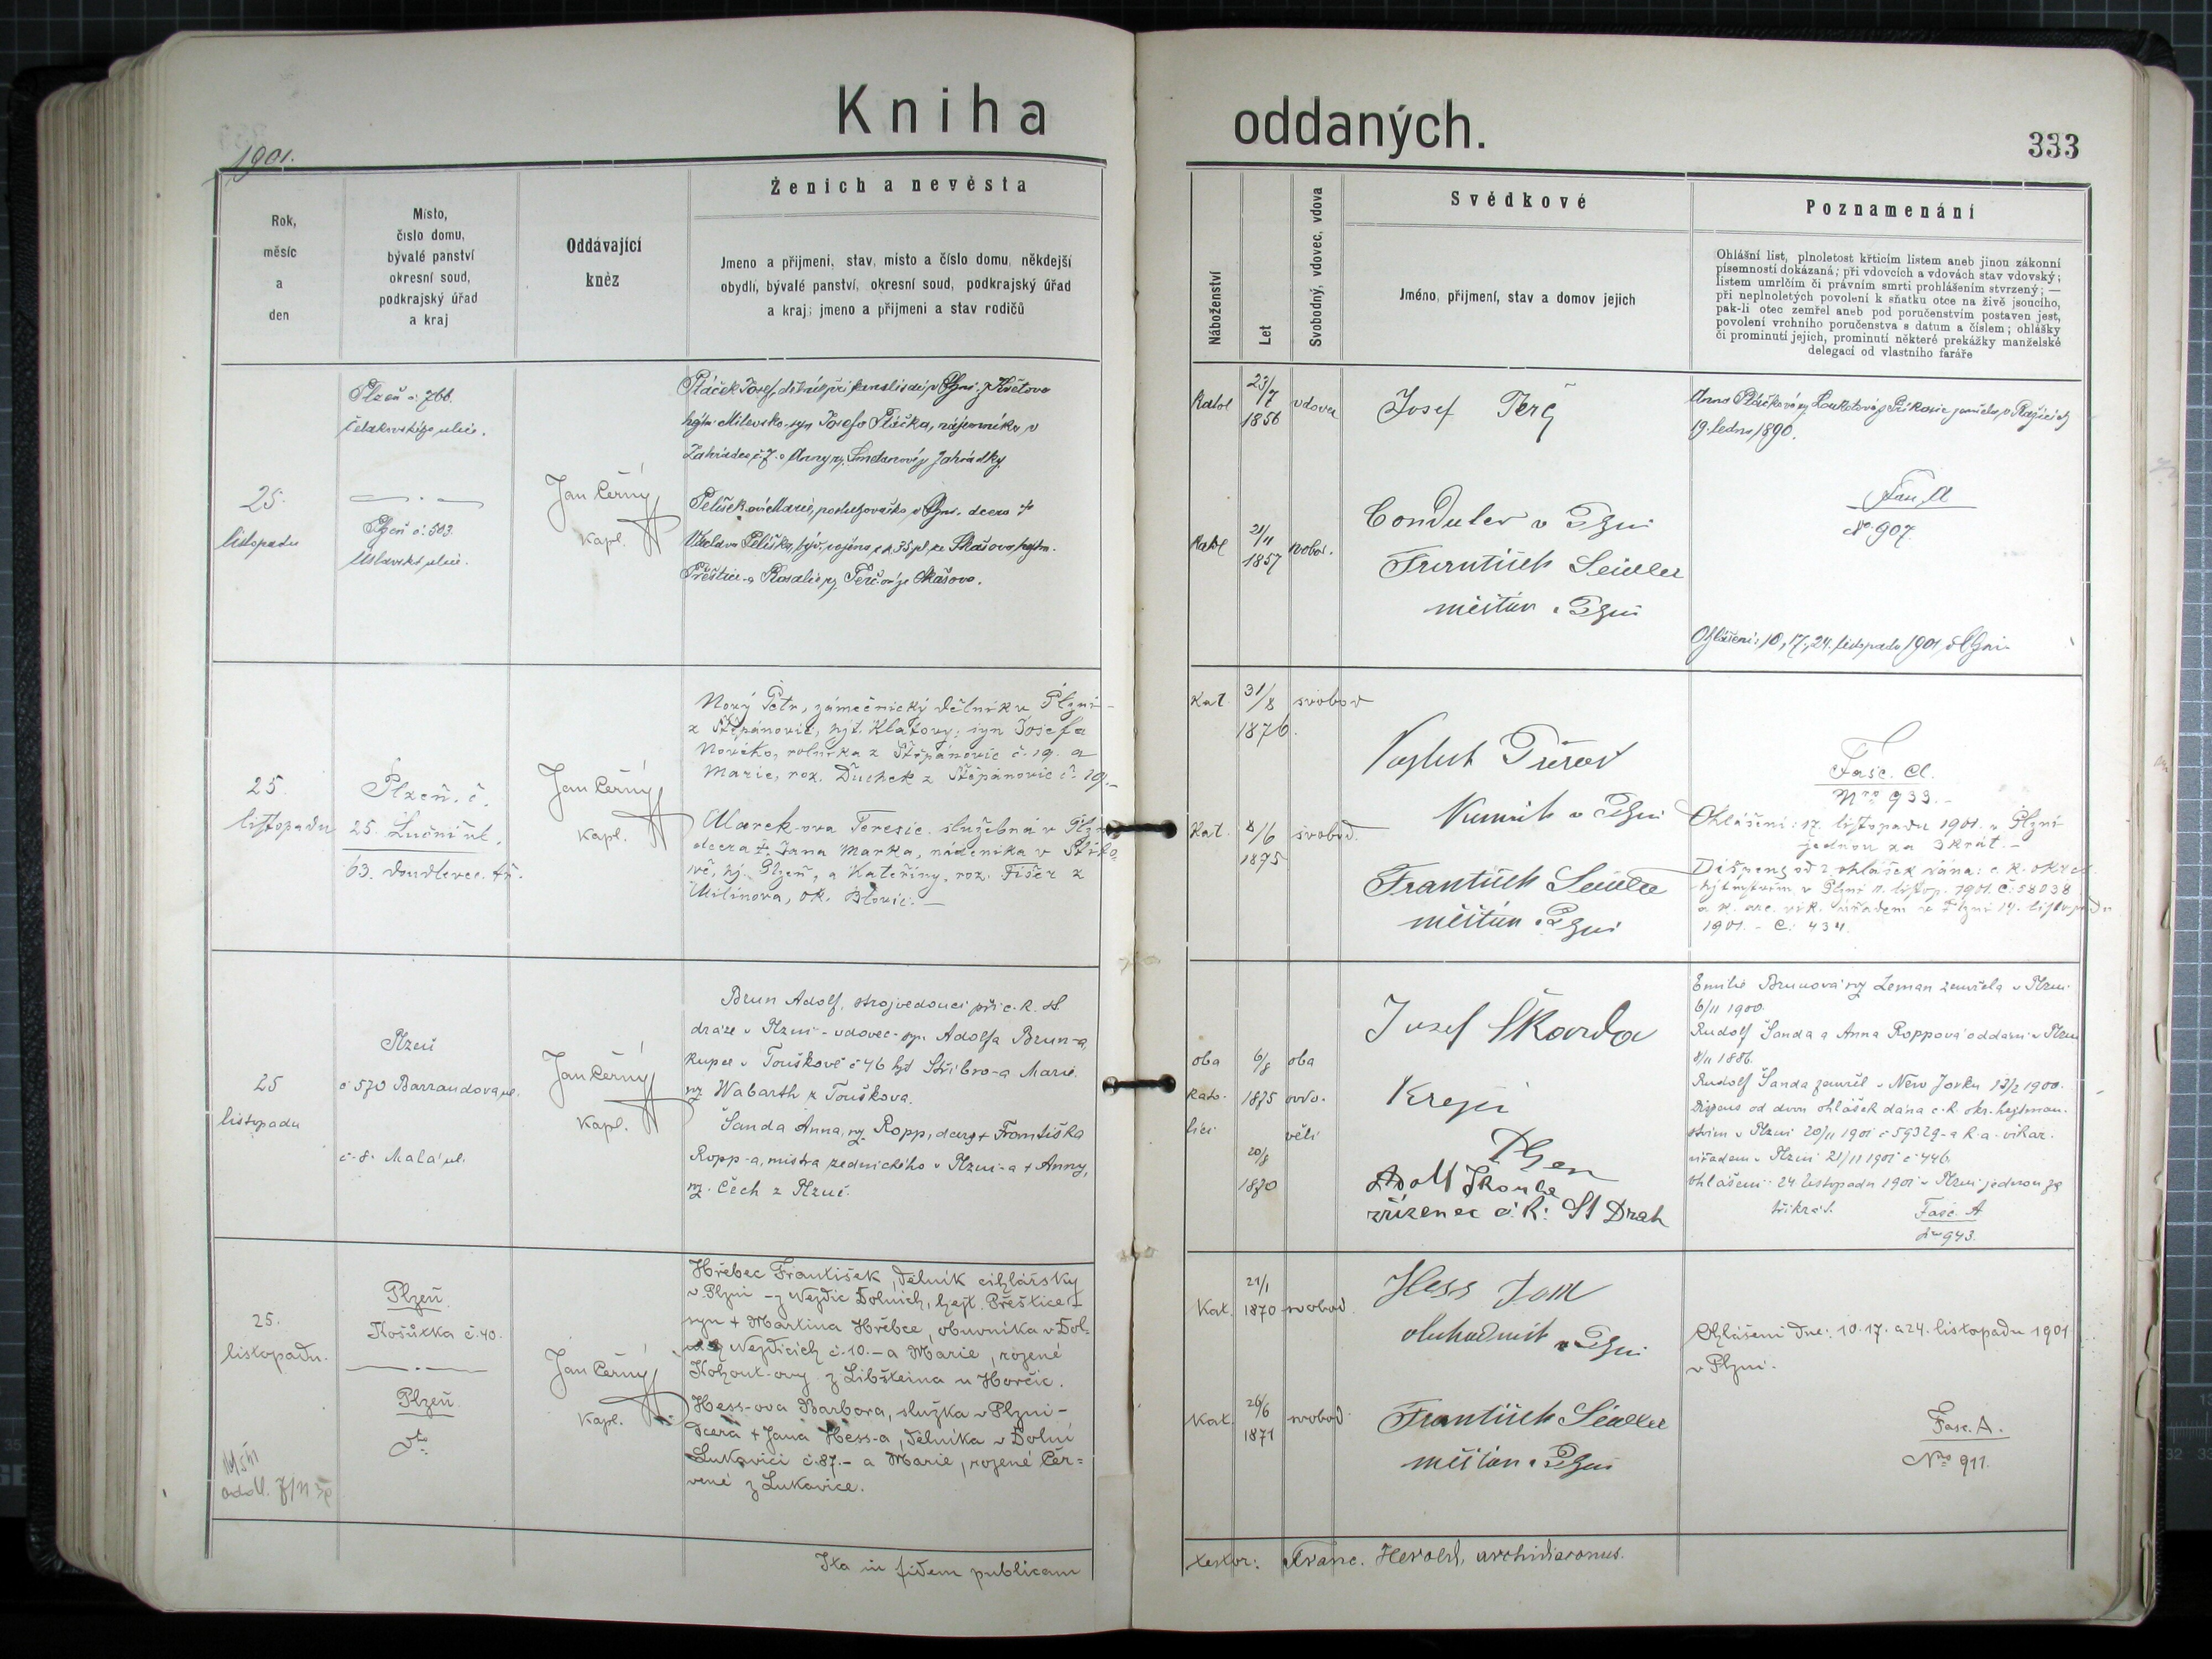 Kniha oddaných.
333
1901.
Rok,
měsíc
a
den
Místo,
číslo domu,
bývalé panství
okresní soud,
podkrajský úřad
a kraj
Oddávající
kněz
Ženich a nevěsta
Jmeno a přijmení, stav, misto a číslo domu, někdejší
obydlí, bývalé panství, okresní soud, podkrajský úřad
a kraj; jmeno a přijmení a stav rodičů
Náboženství
Let
Svobodný, vdovec, vdova
Svědkové
Jméno, přijmení, stav a domov jejich
Poznamenání
Ohlášní list, plnoletost křticím listem aneb jinou zákonní
písemností dokázaná; při vdovcích a vdovách stav vdovský;
listem umrlčím či právním smrti prohlášením stvrzený; —
při neplnoletých povolení k sňatku otce na živě jsoucího,
pak-li otec zemřel aneb pod poručenstvím postaven jest,
povolení vrchního poručenstva s datum a číslem; ohlášky
či prominutí jejich, prominutí některé prekážky manželské
delegací od vlastního faráře
25.
listopadu
Plzeň č. 766.
Čelakovského ulice.
Plzeň č. 503.
Úslavská ulice.
Jan Černý
kapl.
Ptáček Josef, z Květova
hejtm. Milevsko, syn Josefa Ptáčka, nájemníka v
Zahrádce č. 7. a Anny roz. Smetanovy z Zahrádky
Pelíšková Marie, posluhovačka v Plzni, dcera
Václava Pelíška, ze Skašova hejtm.
Přeštice a Rosalie roz. Terčovy ze Skašova.
Katol
23/7
1856
vdovec
Katol
21/11
1857
svobod.
Josef Terč
Conducteur v Plzni
František Seidler
měšťan v Plzni
Anna Ptáčková roz. zemřela v
19. ledna 1890.
Fasc. A
No. 907.
Ohlášeni: 10., 17., 24. listopadu 1901 v Plzni
25.
listopadu
Plzeň. č.
25. Luční ul.
63. Doudlevec. tř.
Jan Černý
kapl.
Nový Petr, zámečnický dělník v Plzni -
z Štěpánovic, hjt. Klatovy; syn Josefa
Nového, rolníka z Štěpánovic č. 19. a
Marie, roz. Duchek z Štěpánovic č. 19.-
Marek-ova Teresie. služebná v Plzni
dcera † Jana Marka, nádeníka v
hj. Plzeň, a Kateřiny, roz. Fišer z
Milínova, ok. Blovic. —
Kat.
31/8
1876.
svobod
Kat.
8/6
1875
svobod.
Vojtěch
v Plzni
František Seidler
měšťan v Plzni
Fasc. A.
Nro 933.-
Ohlášeni: 17. listopadu 1901. v Plzni
jednou za 3krát. -
Dispens od 2 ohlášek dána: c. k. okres.
hejtmanstvím v Plzni 11. listop. 1901. Č: 58038
a k. arc. vik. úřadem v Plzni 14. listopadu
1901. - Č: 434.
25
listopadu
Plzeň
č 570 Barrandova ul.
č. 8. Malá ul.
Jan Černý
kapl.
Brun Adolf, strojvedoucí při c. k. st.
dráze v Plzni - vdovec - syn Adolfa Brun-a,
kupce v Touškově č 46 hjt Stříbro - a Marie
roz. Wabarth z Touškova.
Šanda Anna, roz. Ropp, dcera † Františka
Ropp-a, mistra zednického v Plzni - a † Anny,
roz. Čech z Plzně.
oba
kato-
líci
6/8
1875
20/8
1870
oba
ovdo-
věli
Josef Škarda
Krejčí
Plzen
Adolf
zřizenec c. k: St Drah
Emilie Brunová roz Leman zemřela v Plzni
6/11 1900.
Rudolf Šanda a Anna Roppová oddáni v Plzni
8/11 1886.
Rudolf Šanda zemřel v New Jorku 13/2 1900.
Dispens od dvou ohlášek dána c. k. okr. hejtman-
stvím v Plzni 20/11 1901 č 59329 - a k. a. vikar.
úřadem v Plzni 21/11 1901 č 446.
Ohlášeni: 24 listopadu 1901 v Plzni jednou za
třikrát.
Fasc. A
No 943.
25.
listopadu.
Plzeň.
Košutka č. 40.
Plzeň
Jan Černý
kapl.
Hřebec František, dělník cihlářský
v Plzni - z Nezdic Dolních, hejt. Přeštice -
syn † Martina Hřebce, obuvníka v Dol-
ních Nezdicích č. 10. - a Marie, rozené
Kohout-ovy z Libšteina u Horčic.
Hess-ova Barbora, služka v Plzni -
dcera † Jana Hess-a, dělníka v Dolní
Lukavici č. 87. - a Marie, rozené Čer-
vené z Lukavice.
Kat.
21/1
1870
svobod.
Kat.
26/6
1871
svobod.
Hess
obchodník v Plzni
František Seidler
měšťan v Plzni
Ohlášeni dne: 10. 17. a 24. listopadu 1901
v Plzni.
Fasc. A.
Nro 911.
Ita in fidem publicam
testor: Franc. Herold, archidiaconus.